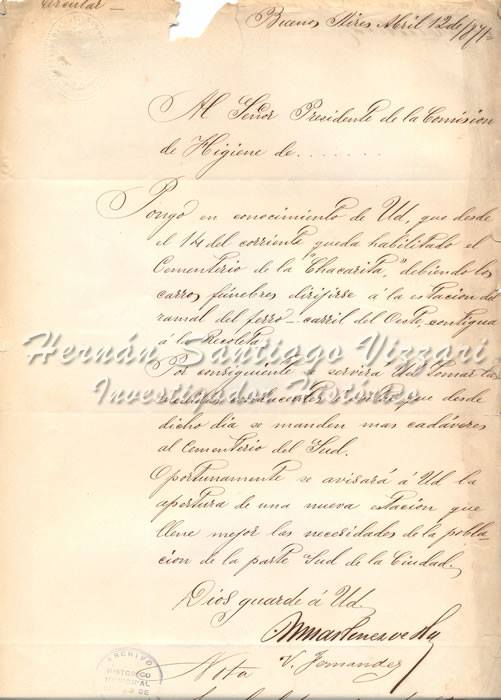 Circular
Buenos Aires Abril 12 de 1871
Al Señor Presidente de la Comision
de Higiene de . . . . . . .
Pongo en conocimiento de Ud, que desde
el 14 del corriente queda habilitado el
Cementerio de la "Chacarita," debiendo los
carros fúnebres dirijirse á la estacion del
ramal del ferro-carril del Oeste, contigua
á la Recoleta.
Hernán Santiago Vizzari
Por consiguiente se servirá Ud. tomar las
Investigador Histórico
medidas conducentes que desde
dicho dia se manden mas cadáveres
al Cementerio del Sud.
Oportunamente se avisará á Ud la
apertura de una nueva estacion que
llene mejor las necesidades de la pobla-
cion de la parte Sud de la Ciudad.
Dios guarde á Ud.
V. Fernandez
Nota
ARCHIVO
HISTORICO
MUNICIPAL